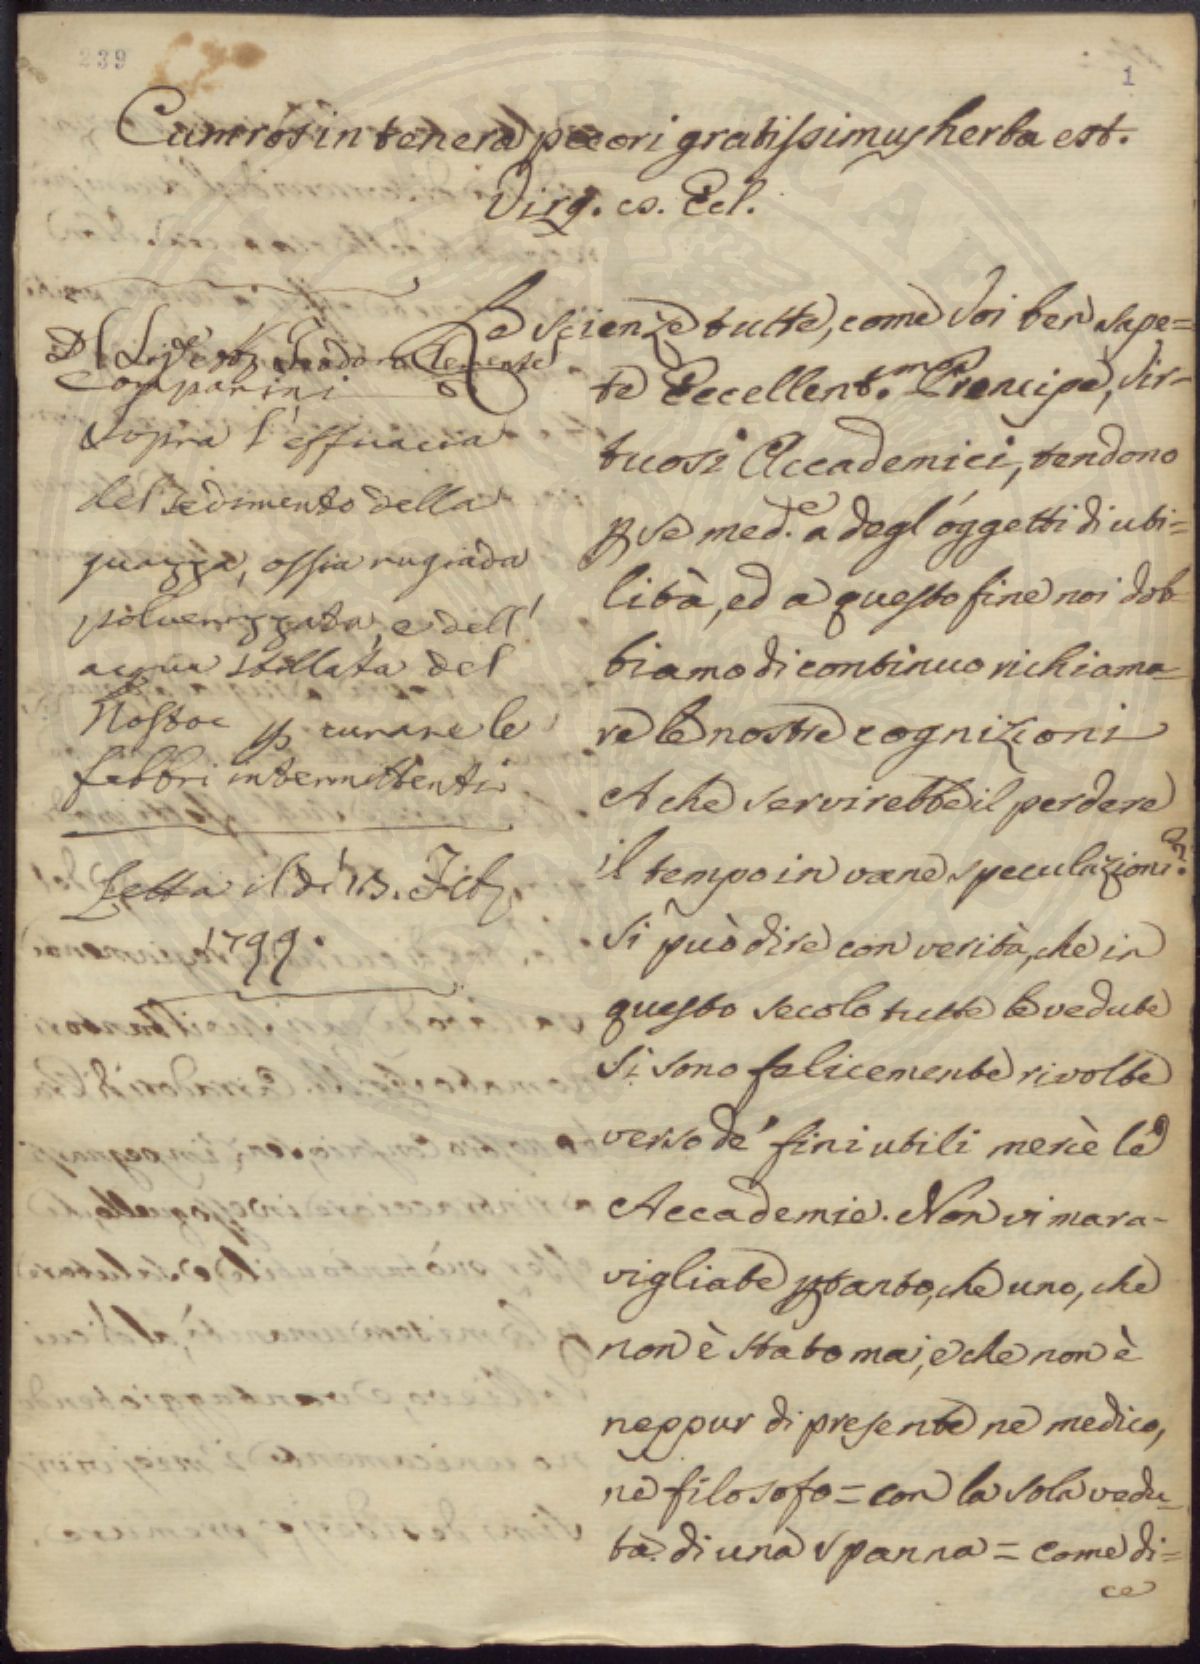 239
1
Cum ros in tenera pecori gratissimus herba est.
Virg. es. Ecl.
Comparini
Sopra l'efficacia
del sedimento della
guazza, ossia rugiada
polverizzata, e dell'
acqua stillata del
Nostoc p curare le
febbri intermittenti
Letta il dì 13. Feb.
1799.
Le scienze tutte, come Voi ben sape=
te Eccellent.mo Prencipe, Vir-
tuosi Accademici, tendono
p se med.e a degl'oggetti di uti=
lità, ed a questo fine noi dob-
biamo di continuo richiama-
re le nostre cognizioni
A che servirebbe il perdere
il tempo in vane speculazioni?
Si può dire con verità, che in
questo secolo tutte le vedute
si sono felicemente rivolte
verso de' fini utili mercè le
Accademie. Non vi mara-
vigliate ptanto, che uno, che
non è stato mai, e che non è
neppur di presente ne medico,
ne filosofo = con la sola vedu-
ta di una spanna = come di=
ce